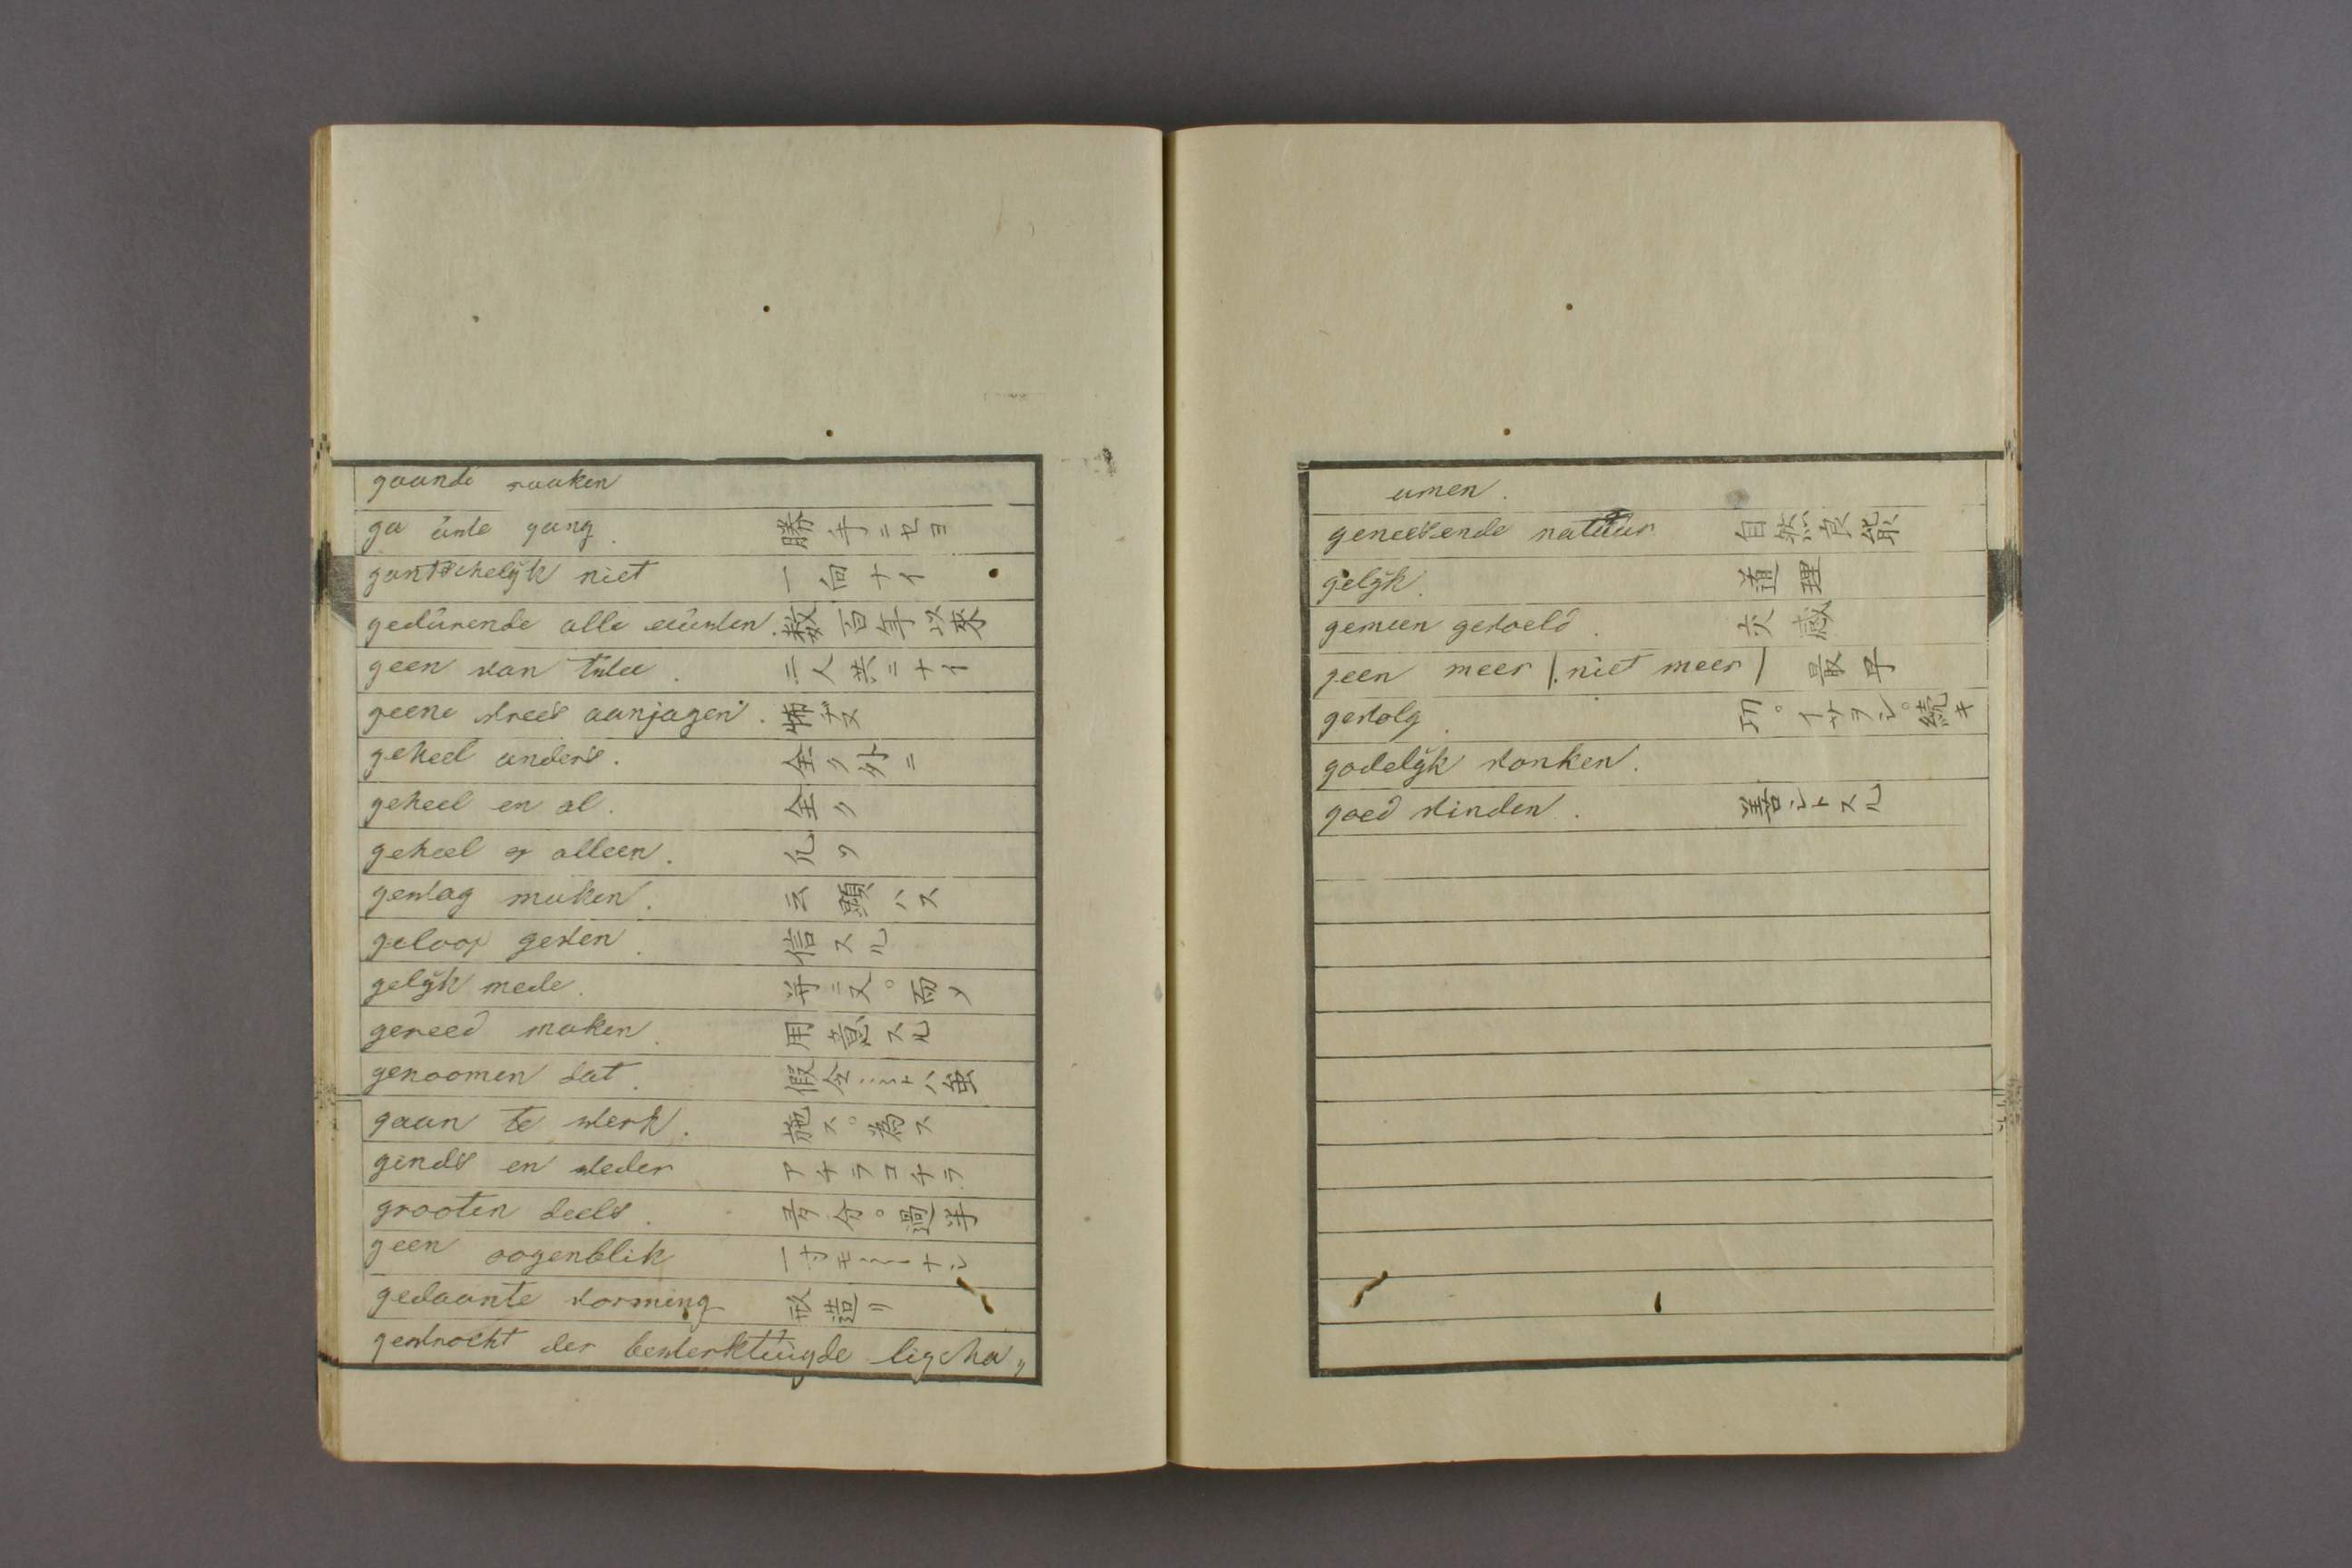 gaande raaken
ga uwe gang. 勝手ニセヨ
gantschelijk niet 一向ナイ
gedurende alle eeuwen. 数百年以來
geen van twee. 二人共ニナイ
geene vrees aanjagen. 怖デヌ
geheel anders. 全ク外ニ
geheel en al. 全ク
geheel alleen.
gewag maken. 云顕ハス
geloof geven. 信スル
gelijk mede. 并ニ又。而〆
gereed maken. 用意スル
genoomen dat. 假令……トハ虽
gaan te werk. 施ス。為ス
ginds en weder アチラコチラ
grooten deels. 多分。過半
geen oogenblik 一寸モ……ナシ
gedaante vorming 形造リ
gewrocht der bewerktuigde ligcha„
amen.
geneesende natuur 自然良能
gelijk. 道理
gemeen gevoeld. 交感
geen meer (niet meer) 最早
gevolg. 功。イサヲシ。続キ
godelijk vonken.
goed vinden. 善シトスル